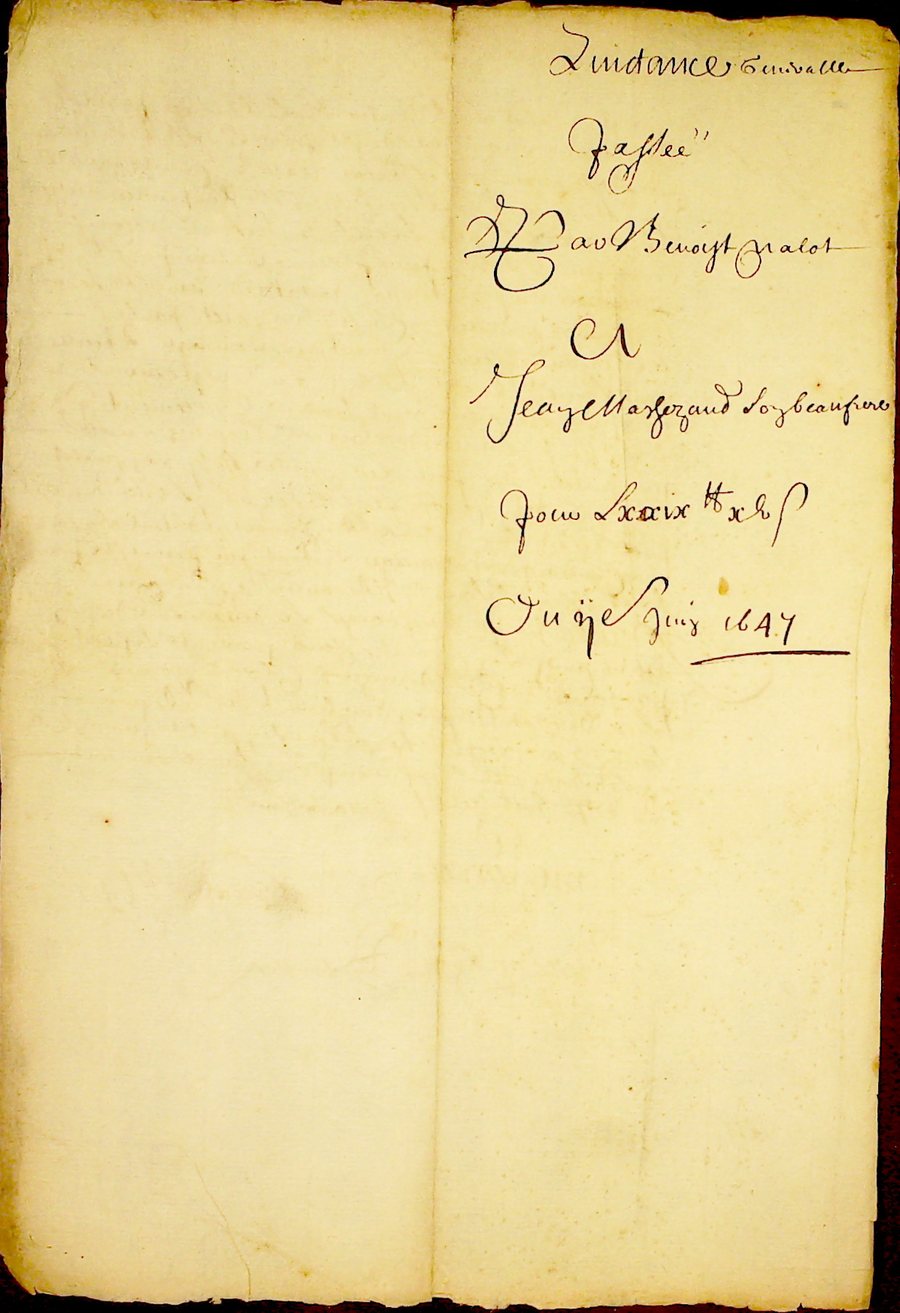 Quictance Generalle
Passee
Par Benoist Palot
A
Jean Marchand son beaufrere
Pour Lxxxix ₶ xv s
Du ije Juin 1647